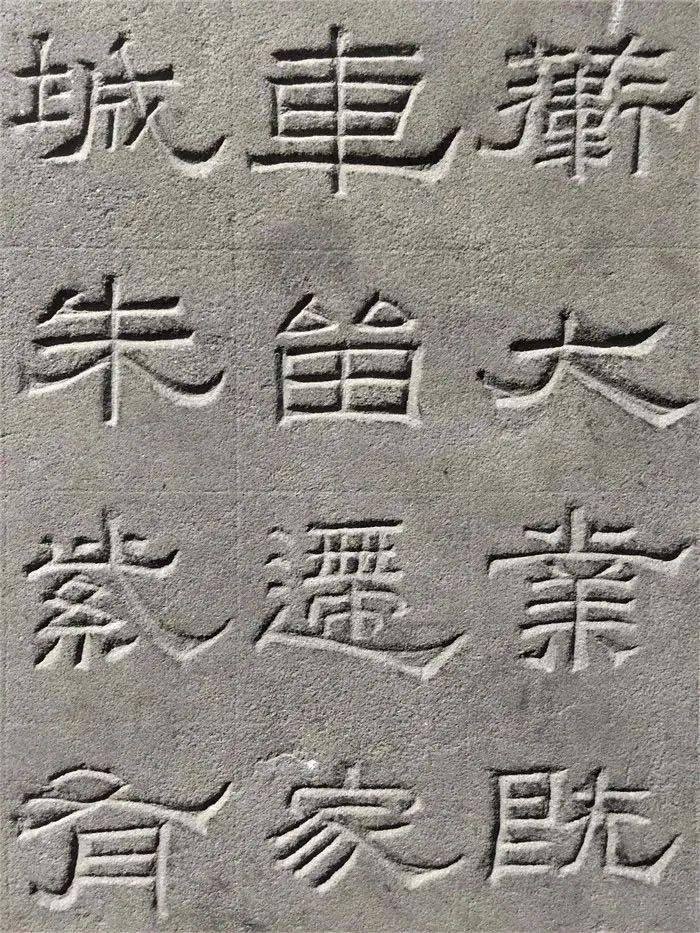 蘄大業既
車留遷家
城朱紫有